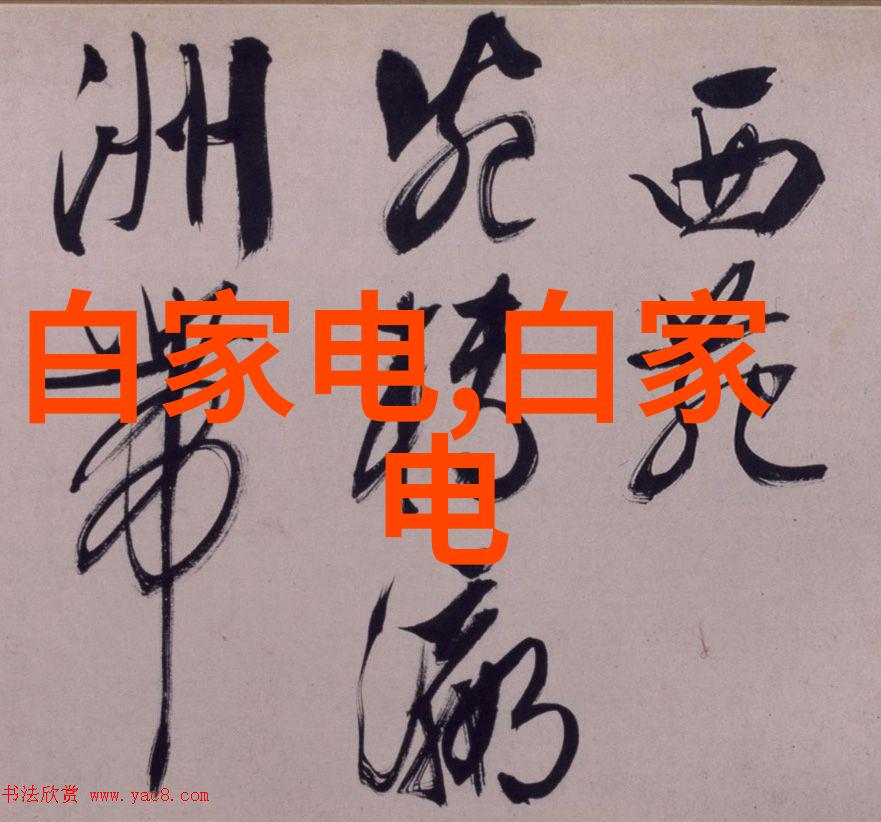 西苑
瀛
洲帶
白家电,白家
电
书法欣赏 www.yac8.com